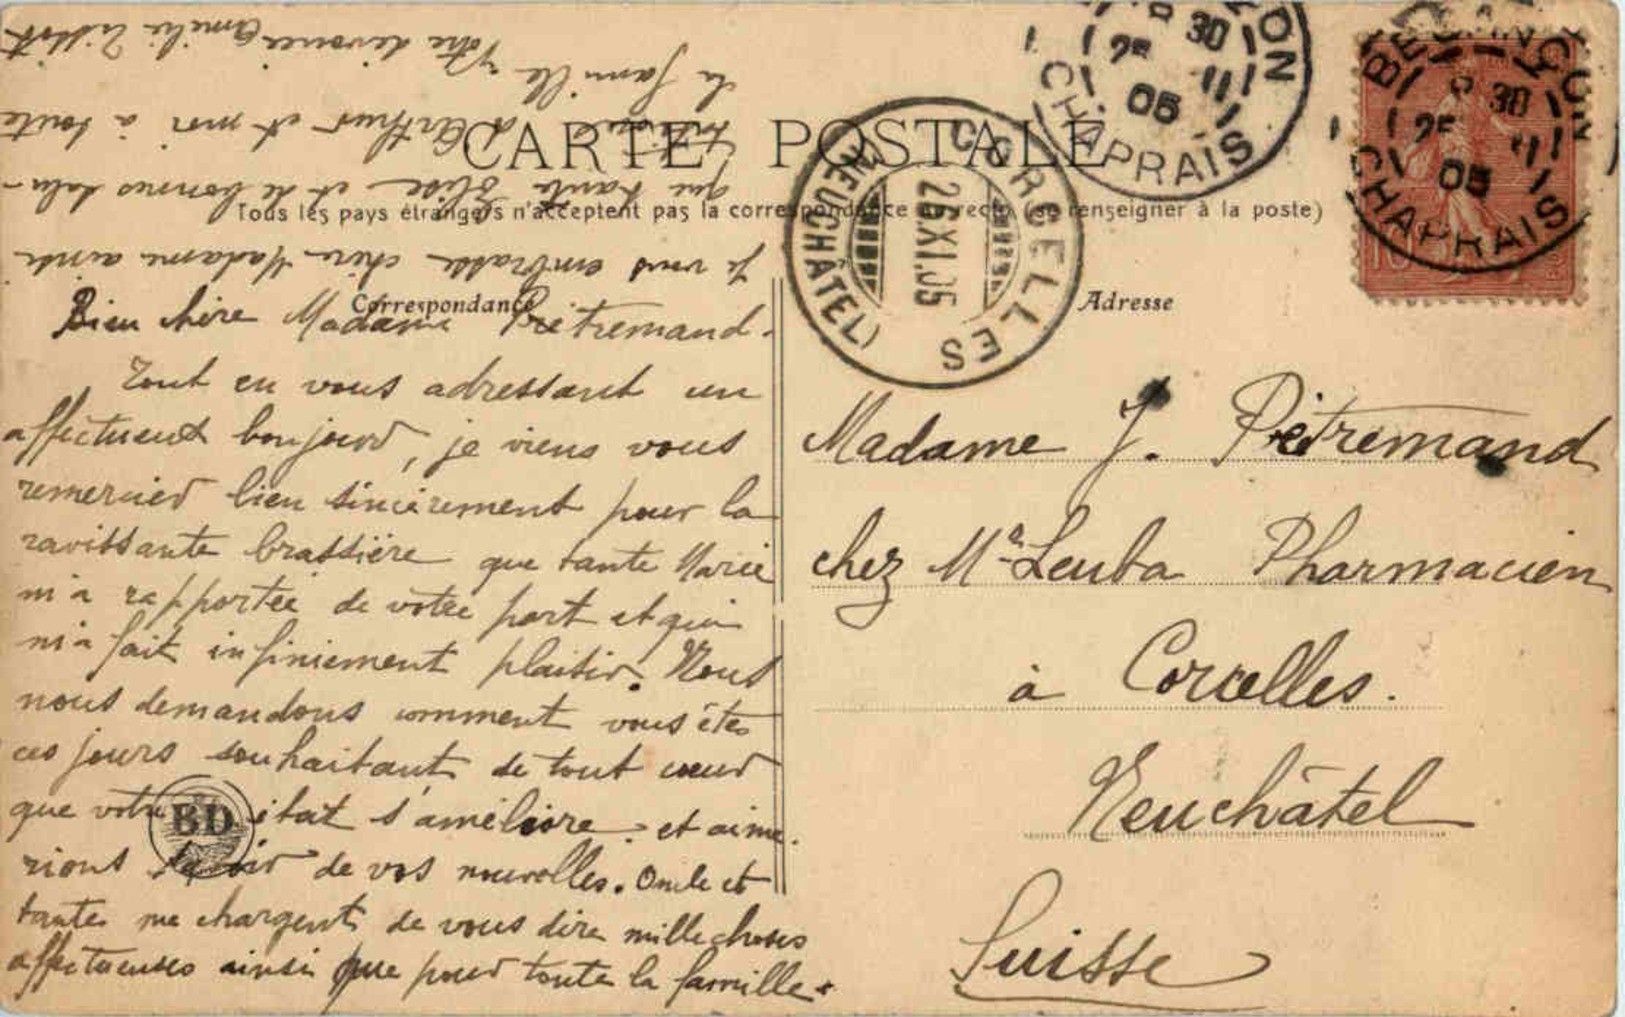 CARTE POSTALE
Tous les pays étrangers n'acceptent pas la correspondance au recto (se renseigner à la poste)
Correspondance
Adresse
Bien chère Madame Prêtremand.
Tout en vous adressant un
affectueux bonjour, je viens vous
remercier bien sincèrement pour la
ravissante brassière que tante Marie
m'a rapportée de votre part et qui
m'a fait infiniment plaisir. Nous
nous demandons comment vous êtes
ces jours souhaitant de tout cœur
que votre état s'améliore et aime-
rions savoir de vos nouvelles. Oncle et
tante me chargent de vous dire mille choses
affectueuses ainsi que pour toute la famille.
Je vous embrasse chère Madame ainsi
que tante Elise et de bonnes salu-
d'Arthur et moi à toute
la famille Votre dévouée Amélie
BD
Madame J. Prêtremand
chez Mr Leuba Pharmacien
à Corcelles.
Neuchâtel
Suisse
CORCELLES
(NEUCHÂTEL)
26.XI.05
BESANÇON
30
25
11
05
CHAPRAIS
BESANÇON
30
25
11
05
CHAPRAIS
10